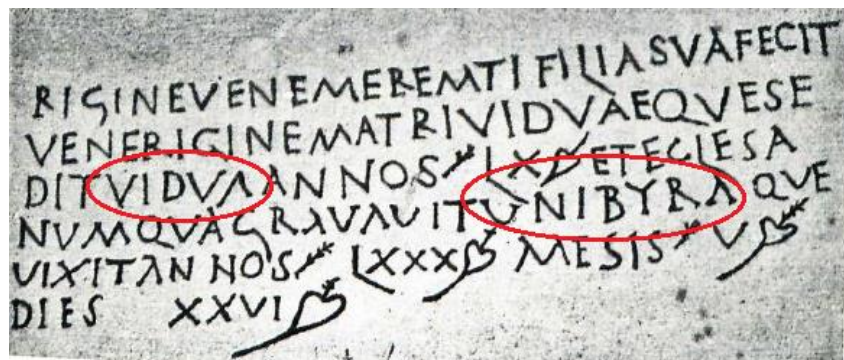 RIGINE VENEMEREMTI FILIA SVA FECIT
VENERIGINE MATRI VIDVAE QVE SE
DIT VIDVA ANNOS LX ET ECLESA
NVMQVA GRAVAVIT VNIBYRA QVE
VIXIT ANNOS LXXX MESIS V
DIES XXVI